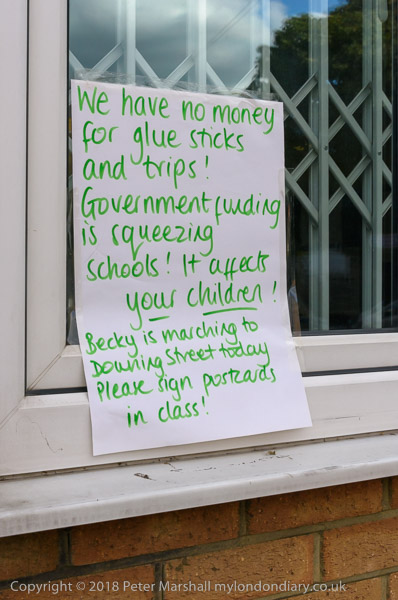 We have no money
for glue sticks
and trips!
Government funding
is squeezing
schools! It affects
your children!
Becky is marching to
Downing Street today
Please sign postcards
in class!
Copyright © 2018 Peter Marshall mylondondiary.co.uk